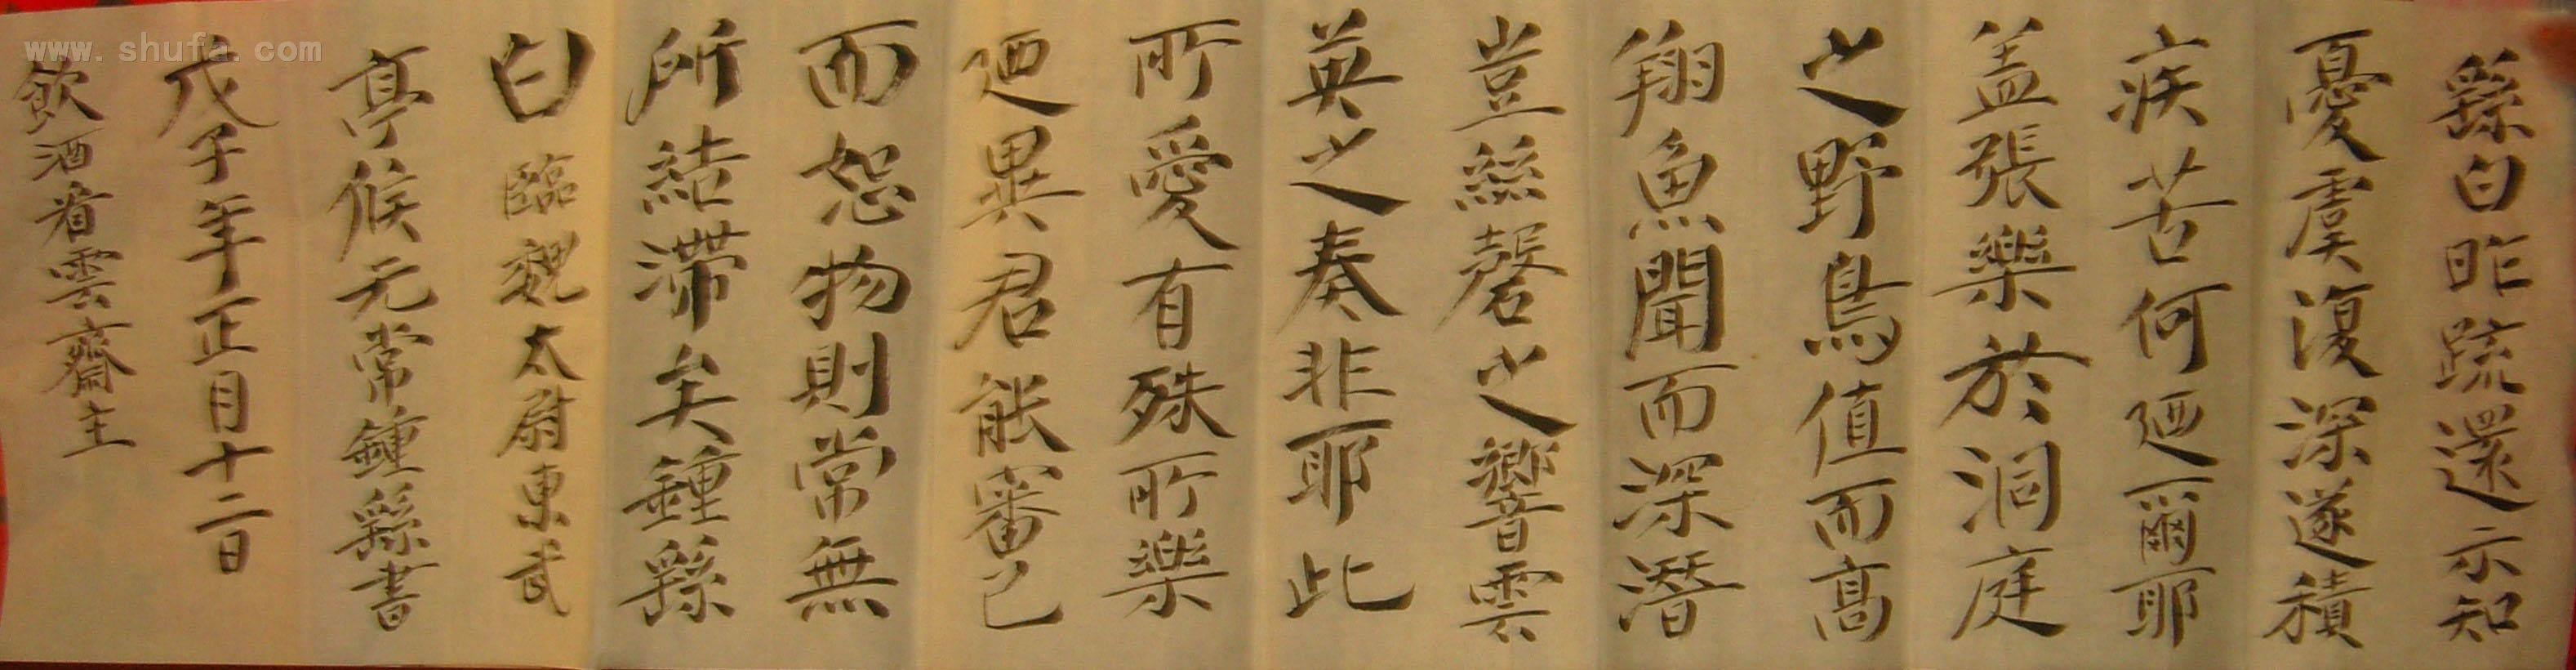 繇白昨疏還示知
憂虞復深遂積
疾苦何迺爾耶
蓋張樂於洞庭
之野鳥值而高
翔魚聞而深潛
豈絲磬之響雲
英之奏非耶此
所愛有殊所樂
迺異君能審己
而恕物則常無
所結滯矣鍾繇
白臨魏太尉東武
亭候元常鍾繇書
戊子年正月十二日
飲酒看雲齋主
www.shufa.com